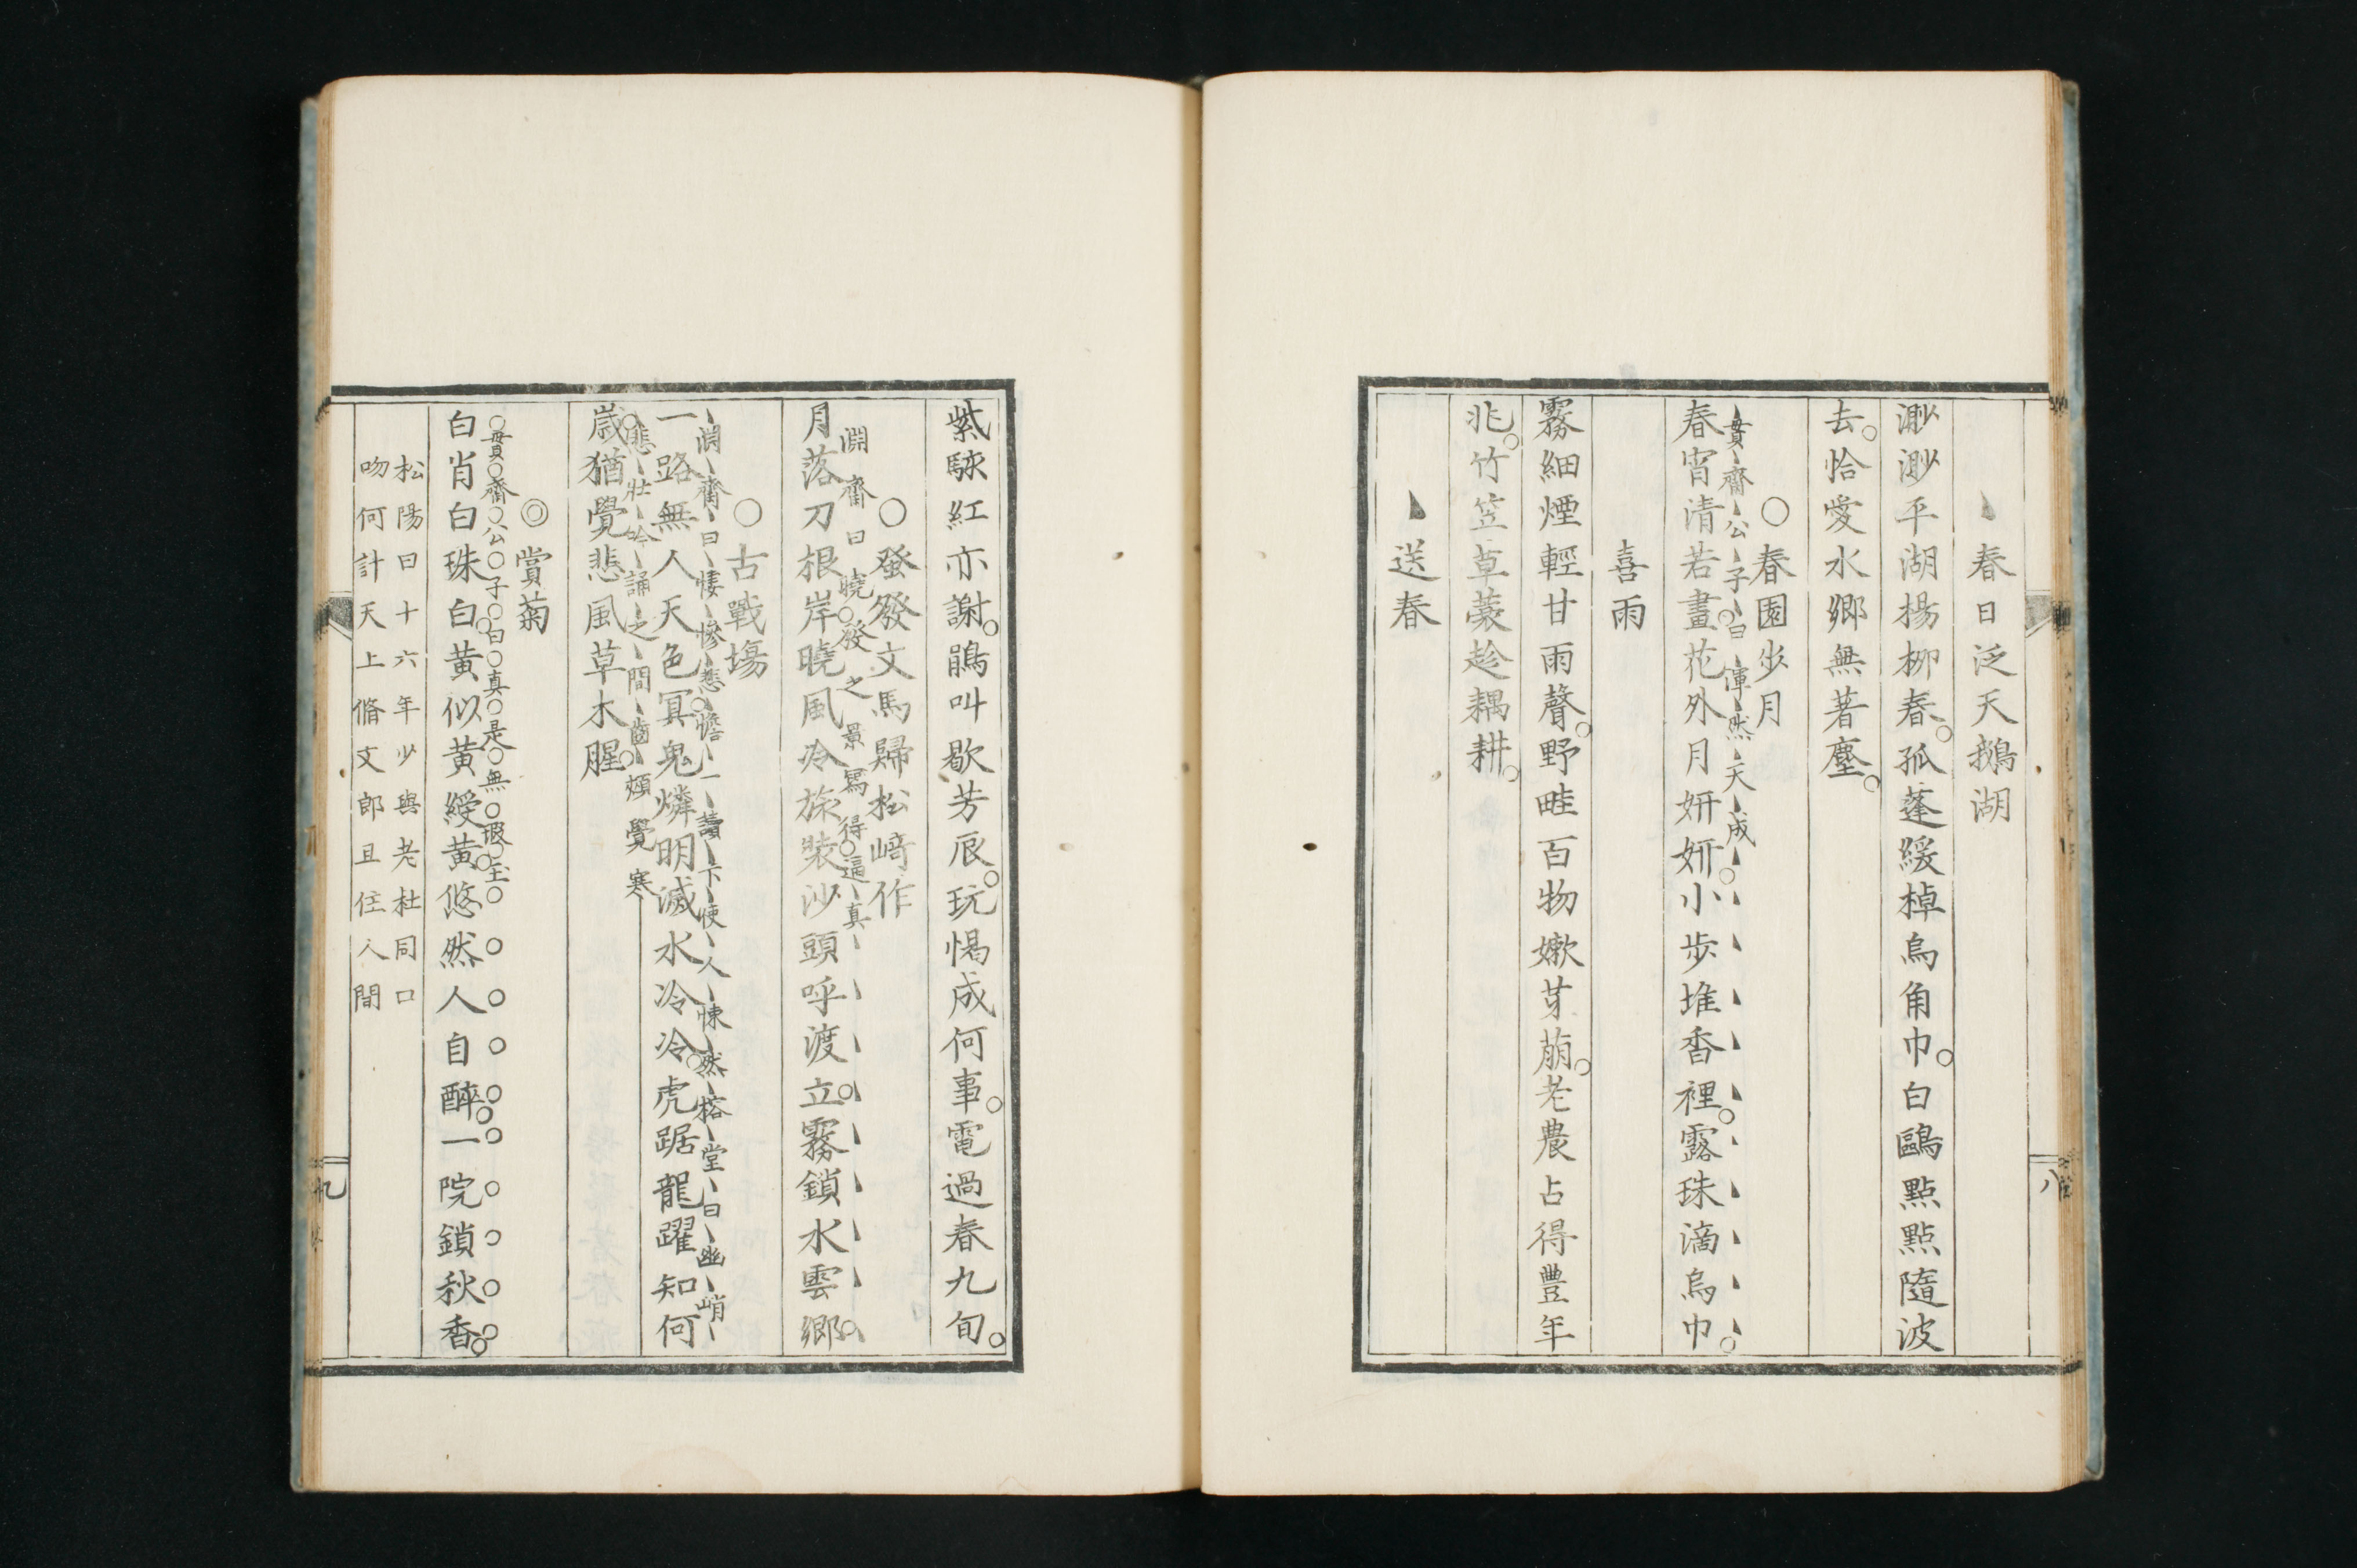 春日泛天鵝湖
渺渺平湖揚柳春。孤蓬緩棹烏角巾。白鷗點點隨波
去。恰愛水鄉無著塵。
○春園步月
賁齋公子曰渾然天成
春宵清若晝。花外月妍妍。小步堆香裡。露珠滴烏巾。
喜雨
霧細煙輕甘雨聲。野畦百物嫰芽萠。老農占得豐年
兆。竹笠草蓑趁耦耕。
送春
八
紫駴紅亦謝。鵑叫歇芳辰。玩愒成何事。電過春九旬。
○發文馬歸松﨑作
淵齋曰曉發之景寫得逼真
月落刀根岸。曉風冷旅裝。沙頭呼渡立。霧鎖水雲鄉。
○古戰塲
淵齋曰悽慘悲憺一讀卞使人悚然榕堂曰幽峭
悲壯吟誦之間齒頰覺寒
一路無人天色冥。鬼燐明滅水冷冷。虎踞龍躍知何
歲。猶覺悲風草木腥。
◎賞菊
賁齋公子曰真是無瑕玉
白肖白珠白。黃似黃綬黃。悠然人自醉。一院鎖秋香。
松陽曰十六年少與老杜同口
吻何計天上脩文郎且住人間
九